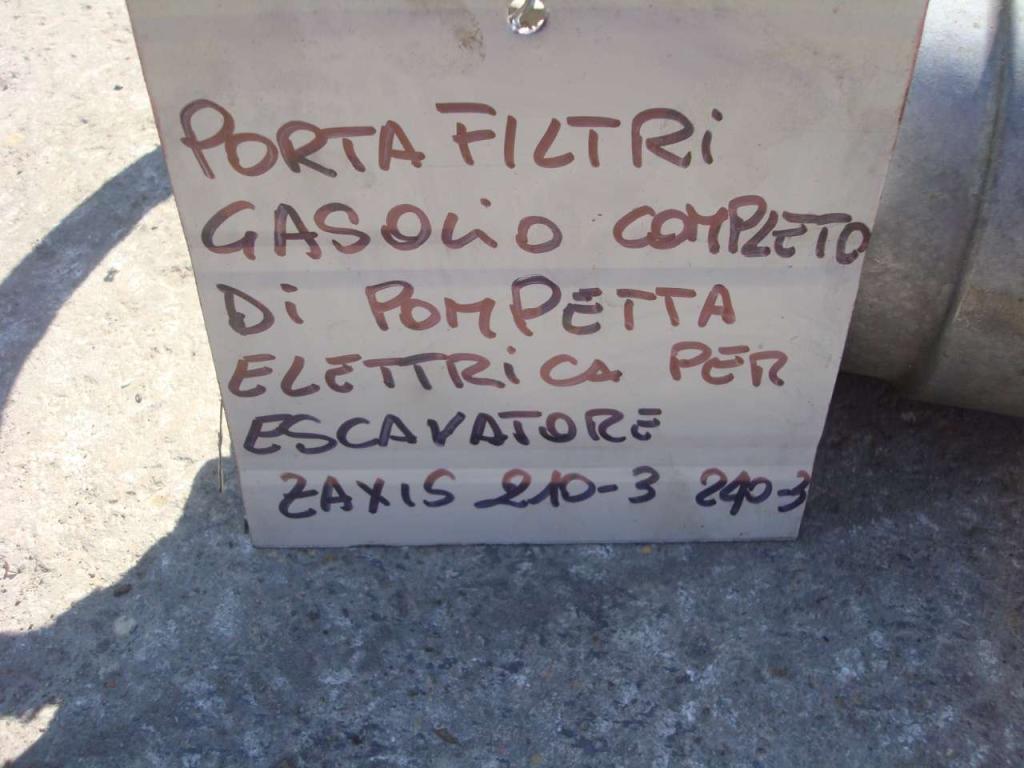 PORTA FILTRI
GASOLiO COMPLETO
Di POMPETTA
ELETTRiCA PER
ESCAVATORE
ZAXIS 210-3 240-3